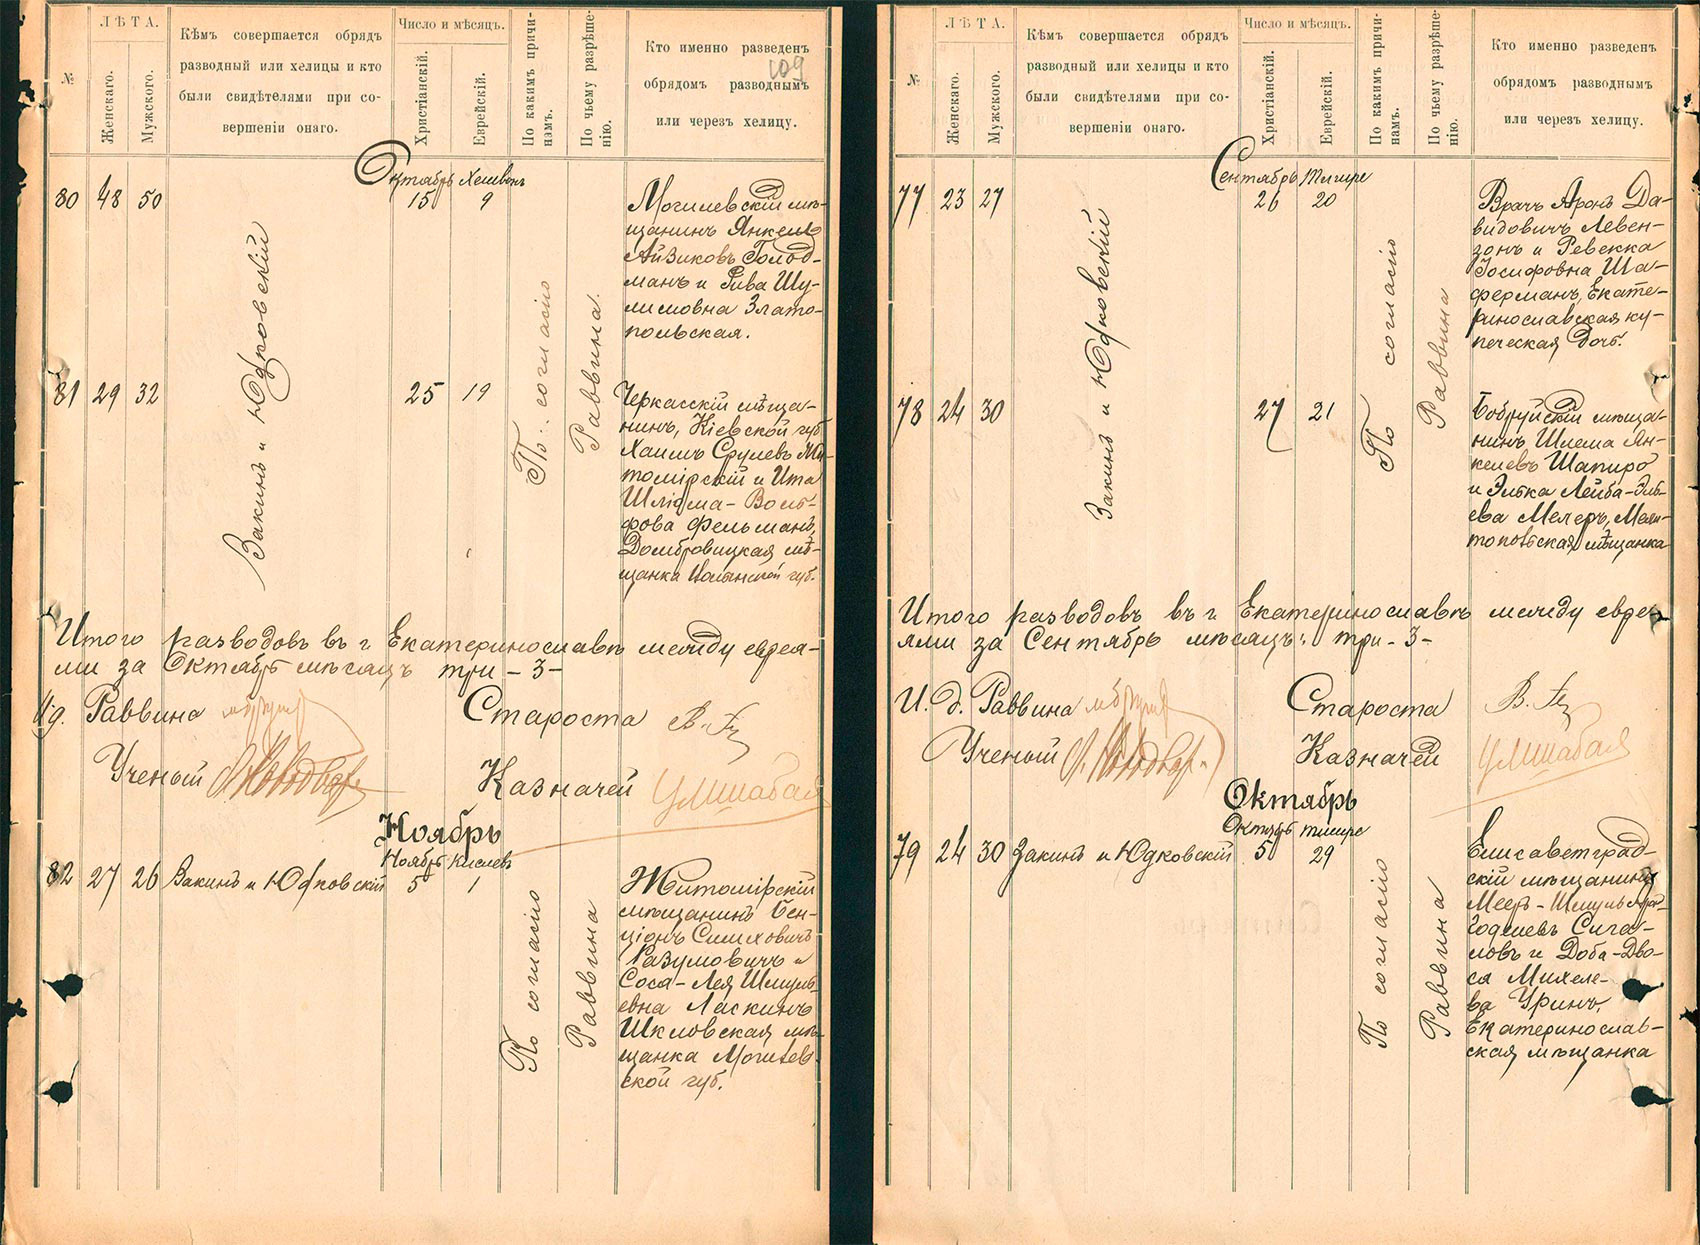 ЛѢТА.
№
Женскаго.
Мужского.
Кѣмъ совершается обрядъ
разводный или хелицы и кто
были свидѣтелями при со-
вершеніи онаго.
Число и мѣсяцъ.
Христіанскій.
Еврейскій.
По какимъ причи-
намъ.
По чьему разрѣше-
нію.
Кто именно разведенъ
обрядомъ разводнымъ
или черезъ хелицу.
109
Октябрь Хешвонъ
80 48 50
15 9
Закинъ и Юдковскій
По согласію
Раввина.
Могилевскій мѣ-
щанинъ Янкель
Айзиковъ Голод-
манъ и Рива Шу-
лимовна Злато-
польская.
81 29 32
25 19
Черкасскій мѣща-
нинъ, Кіевской губ.
Хаимъ Срулевъ
томірскій и Ита
Шліома-Воль-
фова Фельманъ,
Домбровицкая мѣ-
щанка Волынской губ.
Итого разводовъ въ г. Екатеринославѣ между еврея-
ми за Октябрь мѣсяцъ три - 3 -
И.д. Раввина
Староста
Ученый
Казначей
Ноябрь
Ноябрь Кислевъ
82 27 26 Закинъ и Юдковскій 5 1
По согласію
Раввина
Житомірскій
мѣщанинъ Бен-
ціонъ Симховичъ
Разумовичъ и
Соса-Лея Шмуль-
евна Ласкинъ
Шкловская мѣ-
щанка Могилев-
ской губ.
ЛѢТА.
№
Женскаго.
Мужского.
Кѣмъ совершается обрядъ
разводный или хелицы и кто
были свидѣтелями при со-
вершеніи онаго.
Число и мѣсяцъ.
Христіанскій.
Еврейскій.
По какимъ причи-
намъ.
По чьему разрѣше-
нію.
Кто именно разведенъ
обрядомъ разводнымъ
или черезъ хелицу.
Сентябрь Тишре
77 23 27
26 20
Закинъ и Юдковскій
По согласію
Раввина
Врачъ Аронъ Да-
видовичъ Левен-
зонъ и Ревекка
Іосифовна Ша-
ферманъ, Екате-
ринославская ку-
печеская дочь.
78 24 30
27 21
Бобруйскій мѣща-
нинъ Шлема Ян-
келевъ Шапиро
и Элька Лейба-Эль-
ева Мелеръ, Мели-
топольская мѣщанка
Итого разводовъ въ г. Екатеринославѣ между евре-
ями за Сентябрь мѣсяцъ: три - 3 -
И. д. Раввина
Староста
Ученый
Казначей
Октябрь
Октябрь тишре
79 24 30 Закинъ и Юдковскій 5 29
По согласію
Раввина
Елисаветград-
скій мѣщанинъ
Меер-Шмуль
Сига-
ловъ и Доба-Дво-
са Михеле-
ва Уринъ,
Екатеринослав-
ская мѣщанка